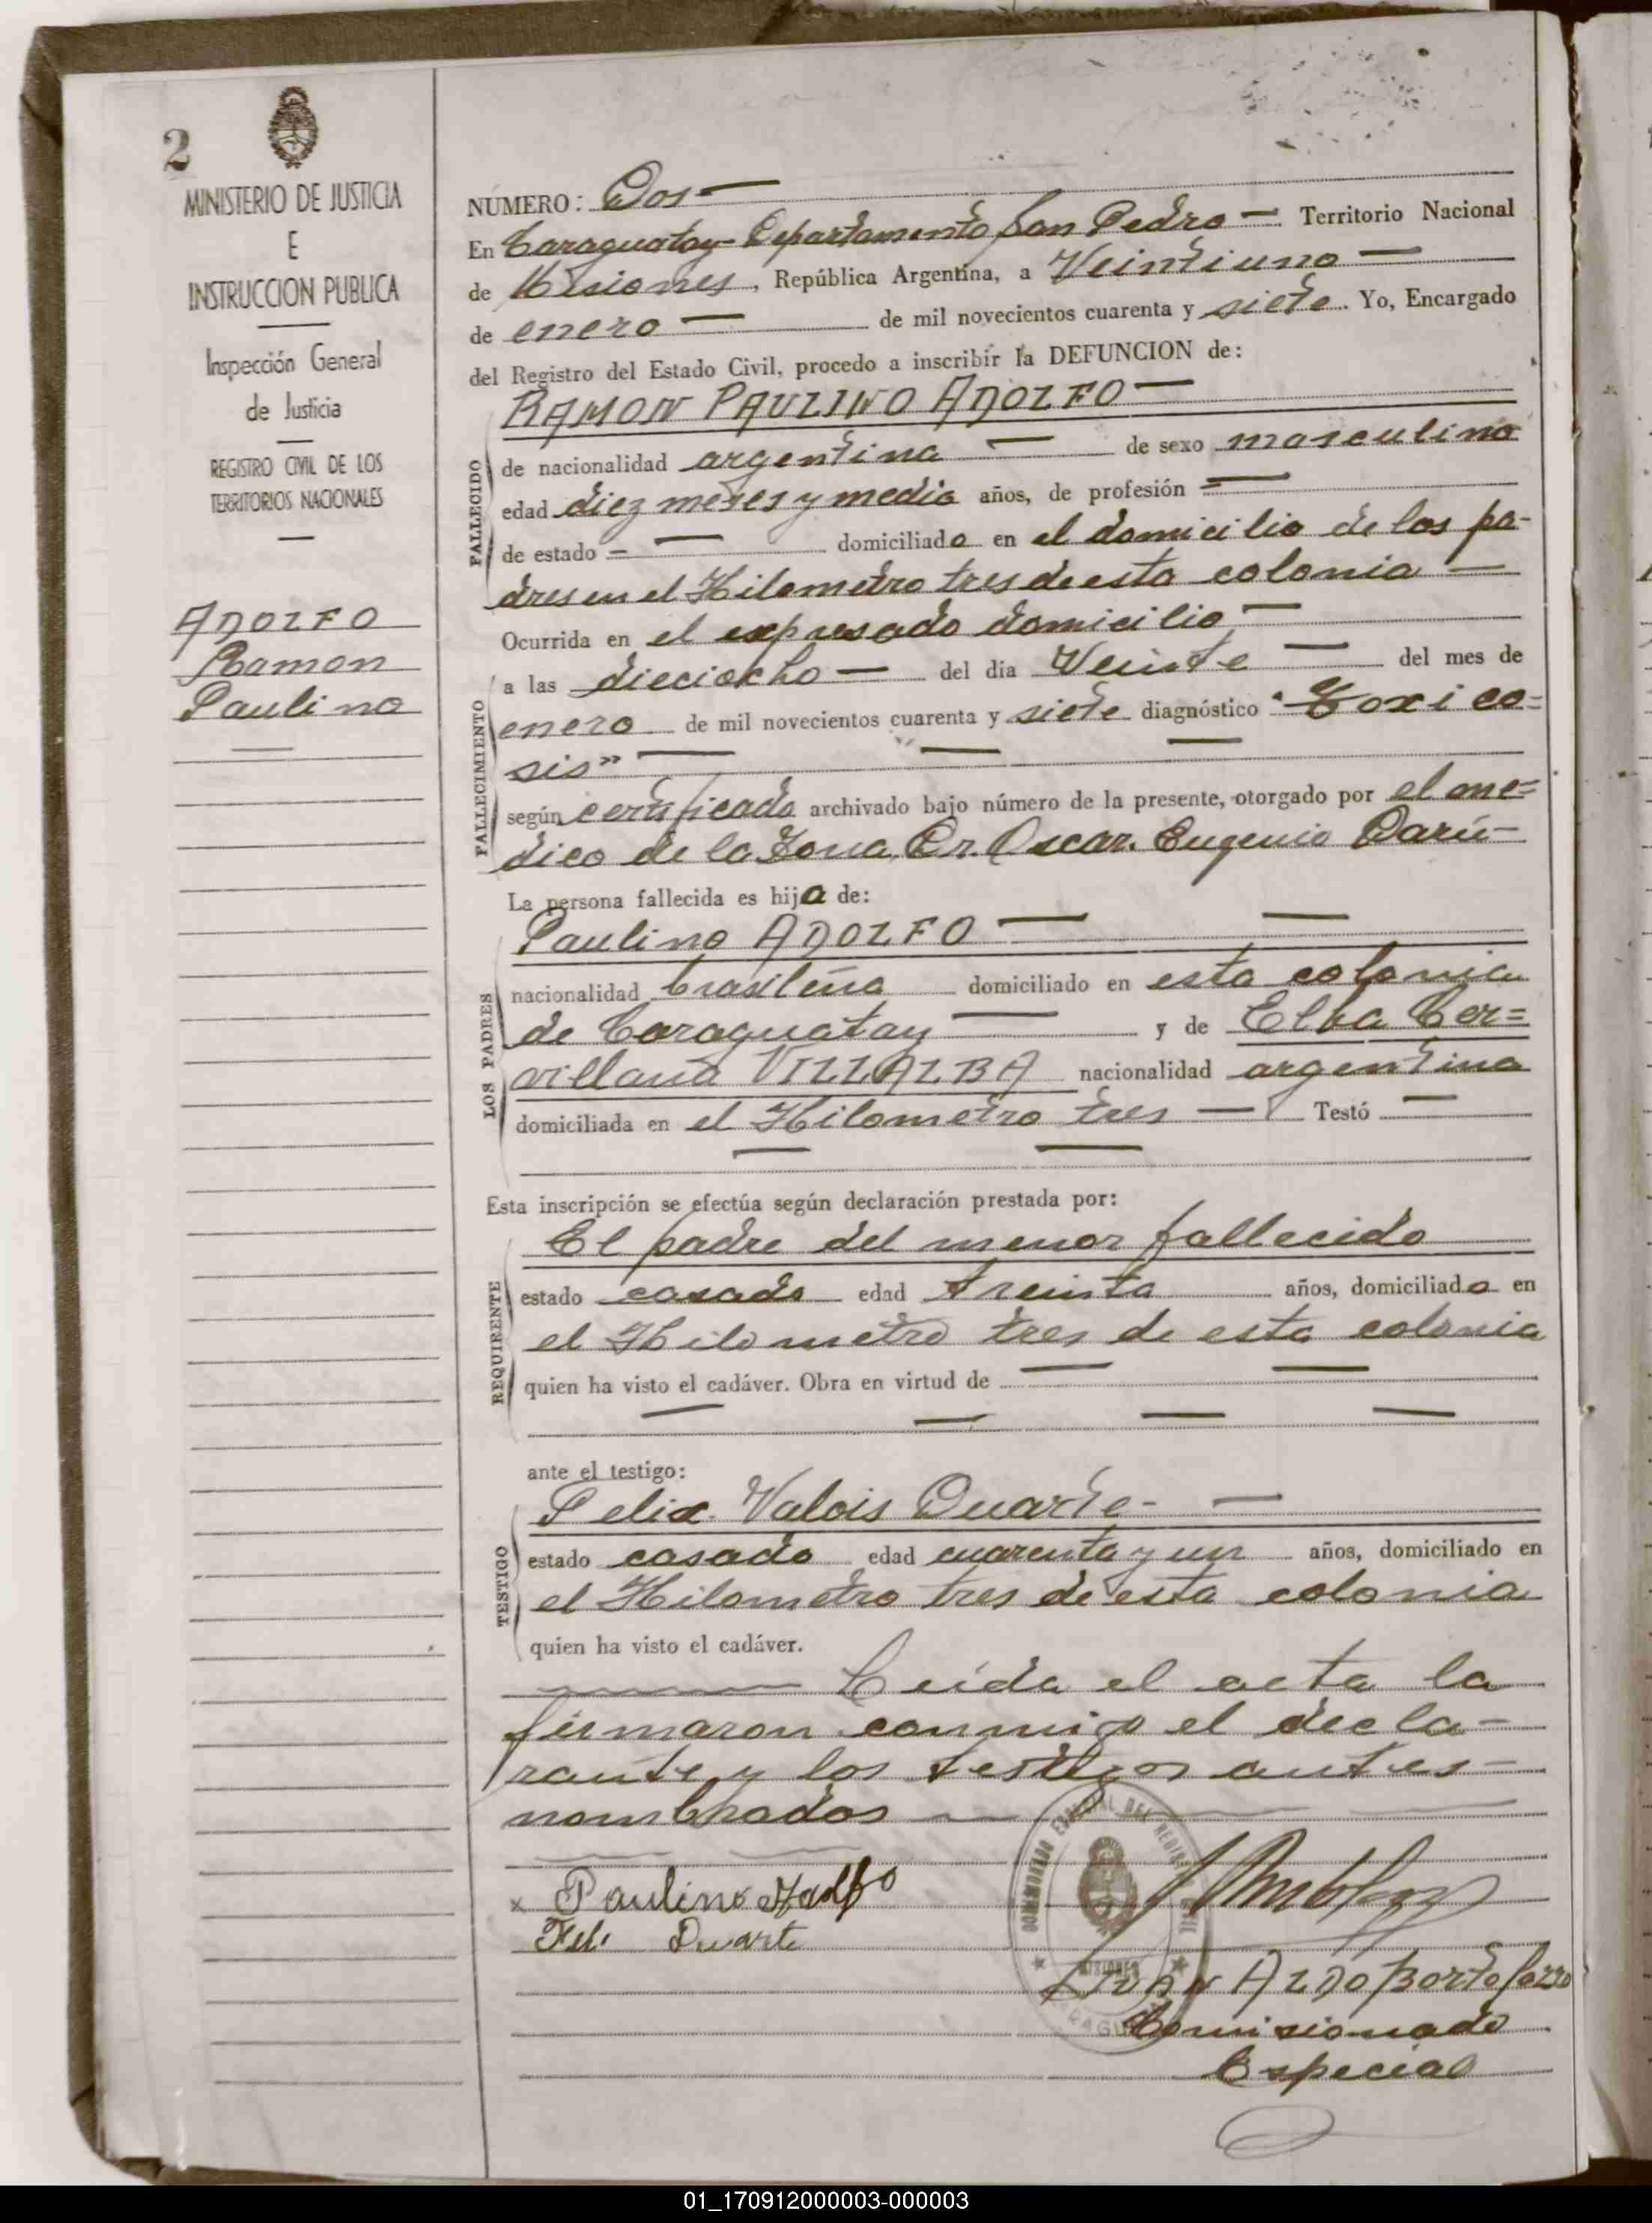 2
MINISTERIO DE JUSTICIA
E
INSTRUCCION PUBLICA
Inspección General
de Justicia
REGISTRO CIVIL DE LOS
TERRITORIOS NACIONALES
ADOLFO
Ramon
Paulino
NÚMERO: Dos
En Caraguatay Departamento San Pedro Territorio Nacional
de Misiones, República Argentina, a Veintiuno
de enero de mil novecientos cuarenta y siete. Yo, Encargado
del Registro del Estado Civil, procedo a inscribir la DEFUNCION de:
RAMON PAULINO ADOLFO
FALLECIDO
de nacionalidad argentina de sexo masculino
edad diez meses y medio años, de profesión
de estado domiciliado en el domicilio de los pa-
dres en el Kilometro tres de esta colonia
Ocurrida en el expresado domicilio
FALLECIMIENTO
a las dieciocho del día Veinte del mes de
enero de mil novecientos cuarenta y siete diagnóstico "Toxico=
sis"
según certificado archivado bajo número de la presente, otorgado por el me=
dico de la Zona, Dr. Oscar. Eugenio Darú
La persona fallecida es hijo de:
LOS PADRES
Paulino ADOLFO
nacionalidad brasileña domiciliado en esta colonia
de Caraguatay y de Elba
VILLALBA nacionalidad argentina
domiciliada en el Kilometro tres Testó
Esta inscripción se efectúa según declaración prestada por:
REQUIRENTE
El padre del menor fallecido
estado casado edad treinta años, domiciliado en
el Kilometro tres de esta colonia
quien ha visto el cadáver. Obra en virtud de
ante el testigo:
TESTIGO
Felix Valois Duarte
estado casado edad cuarenta y un años, domiciliado en
el Kilometro tres de esta colonia
quien ha visto el cadáver.
Leída el acta la
firmaron conmigo el decla-
rante y los testigos antes
nombrados
x Paulino Adolfo
Fel. Duarte
JUAN ALDO
Comisionado
Especial
MISIONES
01_170912000003-000003